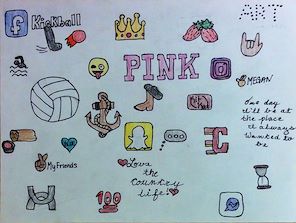 ART
f Kickball
PINK
MEGAN
One day
I'll be at
the place
I always
wanted to
be
C
My Friends
Love
the
Country
life!
100